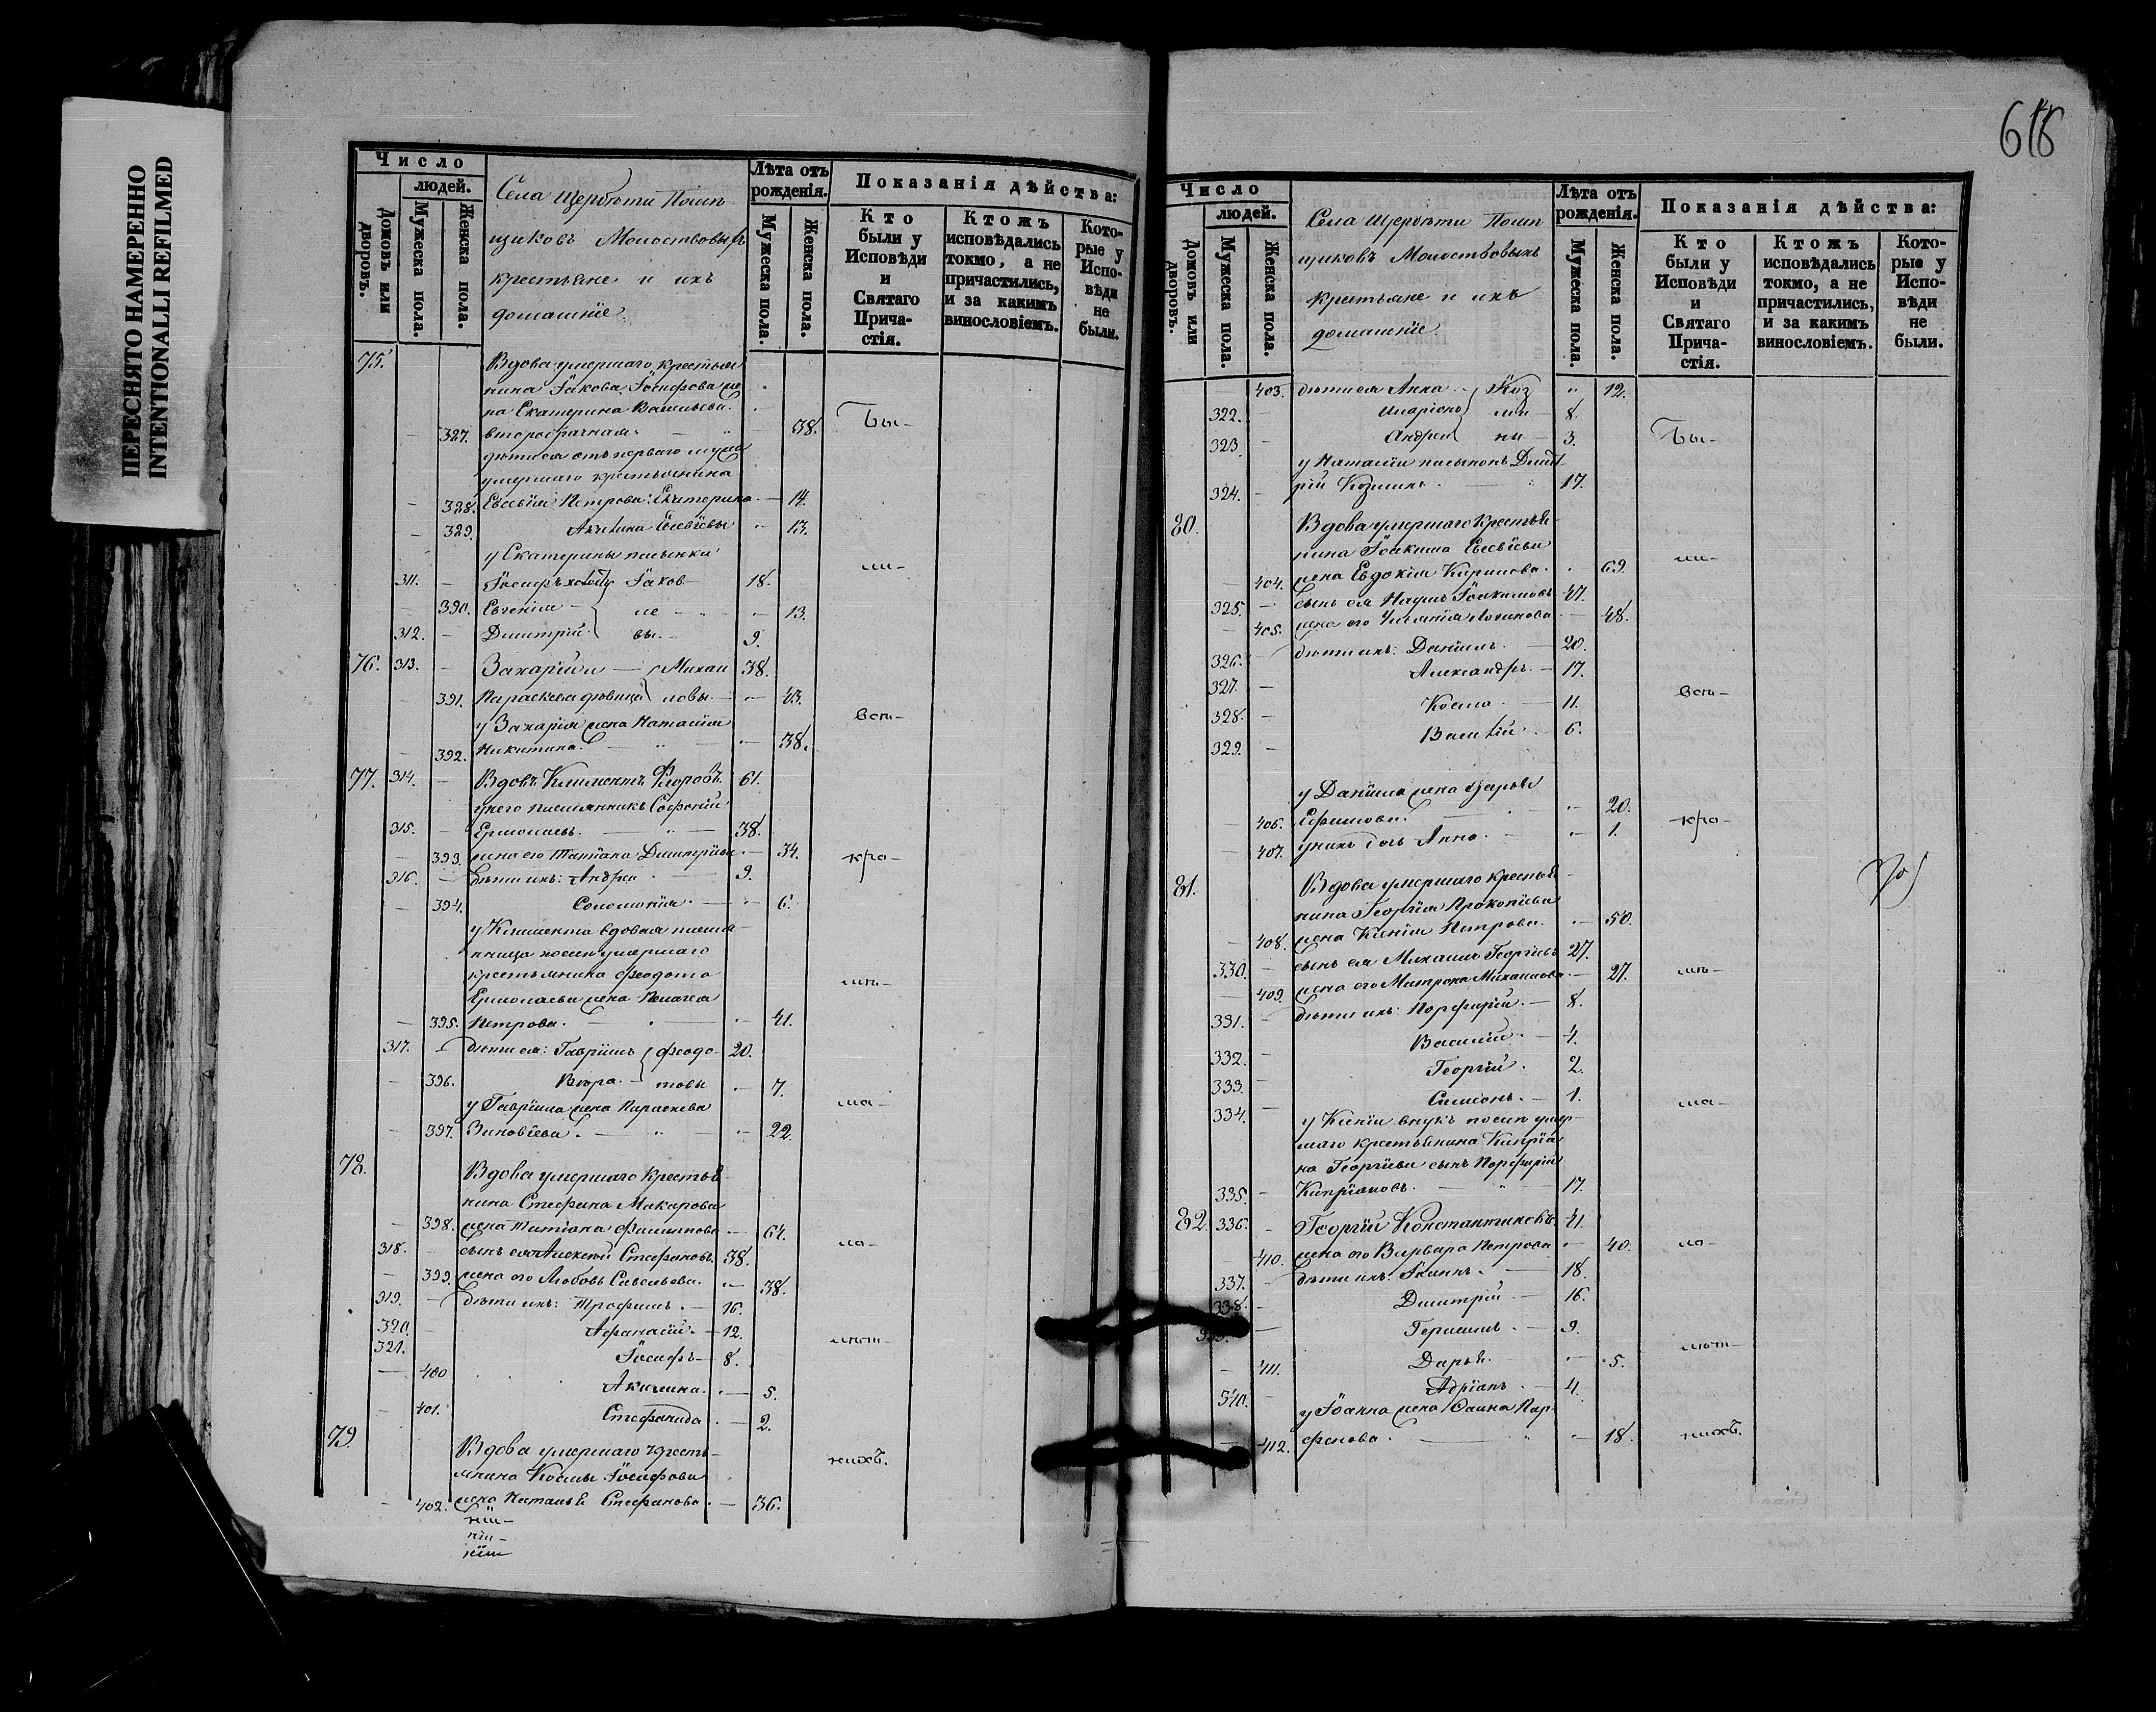 ПЕРЕСНЯТО НАМЕРЕННО
INTENTIONALLI REFILMED
Число
людей.
Домовъ или дворовъ.
Мужеска пола.
Женска пола.
Села Щербети Помѣ
щиковъ Молоствовыхъ
крестьяне и ихъ
домашніе
Лѣта отъ рожденія.
Мужеска пола.
Женска пола.
Показанія дѣйства:
Кто были у Исповѣди и Святаго Прича-стія.
Ктожъ исповѣдались токмо, а не причастились, и за какимъ винословіемъ.
Кото-рые у Испо-вѣди не были.
75. Вдова умершаго крестья
нина Іакова Іосифова же
на Екатерина Васильева
327. второбрачная 38. Бы-
дѣти ея отъ перваго мужа
умершаго крестьянина
328. Евсевія Петрова: Екатерина 14.
329. Акилина Евсевіевы 13.
у Екатерины пасынки ли-
311. Іосифъ Іаков 18.
390. Евгенія ле 13.
312. Димитрій вы. 9.
76. 313. Захарій Михаи 38.
391. Параскева дѣвица ловы 43.
у Захарія жена Наталія всѣ-
392. Никитина. 38.
77. 314. Вдовъ Климентъ Ѳеодоровъ 61.
у него племянникъ Софоній
315. Ермолаевъ. 38.
393. жена его Татіана Димитріева 34. кро-
316. дѣти ихъ: Андрей 9.
394. Соломонія 6.
у Климента вдовая племя-
нница жена умершаго
крестьянина Ѳеодота мѣ-
Ермолаева жена Пелагея
395. Петрова. 41.
317. дѣти ея: Гавріилъ Ѳеодо 20.
396. Вѣра товы 7.
у Гавріила жена Параскева ма-
397. Зиновіева. 22.
78. Вдова умершаго крестья
нина Стефана Макарова
398. жена Татіана Филиппова 64.
318. сынъ ея Алексей Стефановъ. 38. ло-
399. жена его Любовь Савельева. 38.
319. дѣти ихъ: Трофимъ 16.
320. Аѳанасій 12. лѣт-
321. Іосифъ 8.
400 Акилина 5.
401. Стефанида 2.
79. Вдова умершаго кресть-
янина Космы Іосифова нихъ.
402. жена Наталья Стефанова 36.
618
Число
людей.
Домовъ или дворовъ.
Мужеска пола.
Женска пола.
Села Щербети Помѣ
щиковъ Молоствовыхъ
крестьяне и ихъ
домашніе
Лѣта отъ рожденія.
Мужеска пола.
Женска пола.
Показанія дѣйства:
Кто были у Исповѣди и Святаго Прича-стія.
Ктожъ исповѣдались токмо, а не причастились, и за какимъ винословіемъ.
Кото-рые у Испо-вѣди не были.
403. дѣти ея Анна Коз 12.
322. Иларіонъ ми 8.
323. Андрей ны 3. Бы-
у Наталіи пасынокъ Димит
324. рій Козминъ 17.
80. Вдова умершаго крестья-
нина Іоакима Евсевіева
404. жена Евдокія Кирилова 69. ли-
325. сынъ ея Наумъ Іоакимовъ 47.
405. жена его Уліанія Логинова 48.
326. дѣти ихъ: Даніилъ 20.
327. Александръ 17.
328. Косма 11. всѣ-
329. Василій 6.
у Даніила жена Дарья
406. Ефимова. 20. кро-
407. у нихъ дочь Анна. 1.
81. Вдова умершаго крестья-
нина Георгія Прокопіева
408. жена Ксенія Петрова 50.
330. сынъ ея Михаилъ Георгіевъ 27.
409. жена его Матрона Михаилова 27. мѣ-
331. дѣти ихъ: Порфирій 8.
332. Василій 4.
333. Георгій 2.
334. Симеонъ 1. ма-
у Ксеніи внукъ умер-
шаго крестьянина Кипріа
на Георгіева сынъ Порфирій
335. Кипріановъ. 17.
82. 336. Георгій Константиновъ 41.
410. жена его Варвара Петрова 40. ло-
337. дѣти ихъ: Іоаннъ 18.
338. Димитрій 16.
339. Герасимъ 9. лѣт-
411. Дарья 5.
340. Адріанъ 4.
у Іоанна жена Пар-
412. фенова. 18. нихъ.